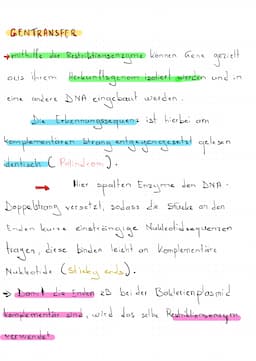 GENTRANSFER
→ mithilfe der Restriktionsenzyme können Gene gezielt
aus ihrem Herkunftsgenom isoliert werden und in
eine andere DNA eingebaut werden.
Die Erkennungssequenz ist hierbei am
komplementären Strang entgegengesetzt gelesen
identisch (Palindrom).
→ Hier spalten Enzyme den DNA-
Doppelstrang versetzt, sodass die Stücke an den
Enden kurze einsträngige Nukleotidsequenzen
tragen, diese binden leicht an komplementäre
Nukleotide (Sticky ends).
→ Damit die Enden zB bei der Bakterienplasmid
komplementär sind, wird das selbe Restriktionsenzym
verwendet